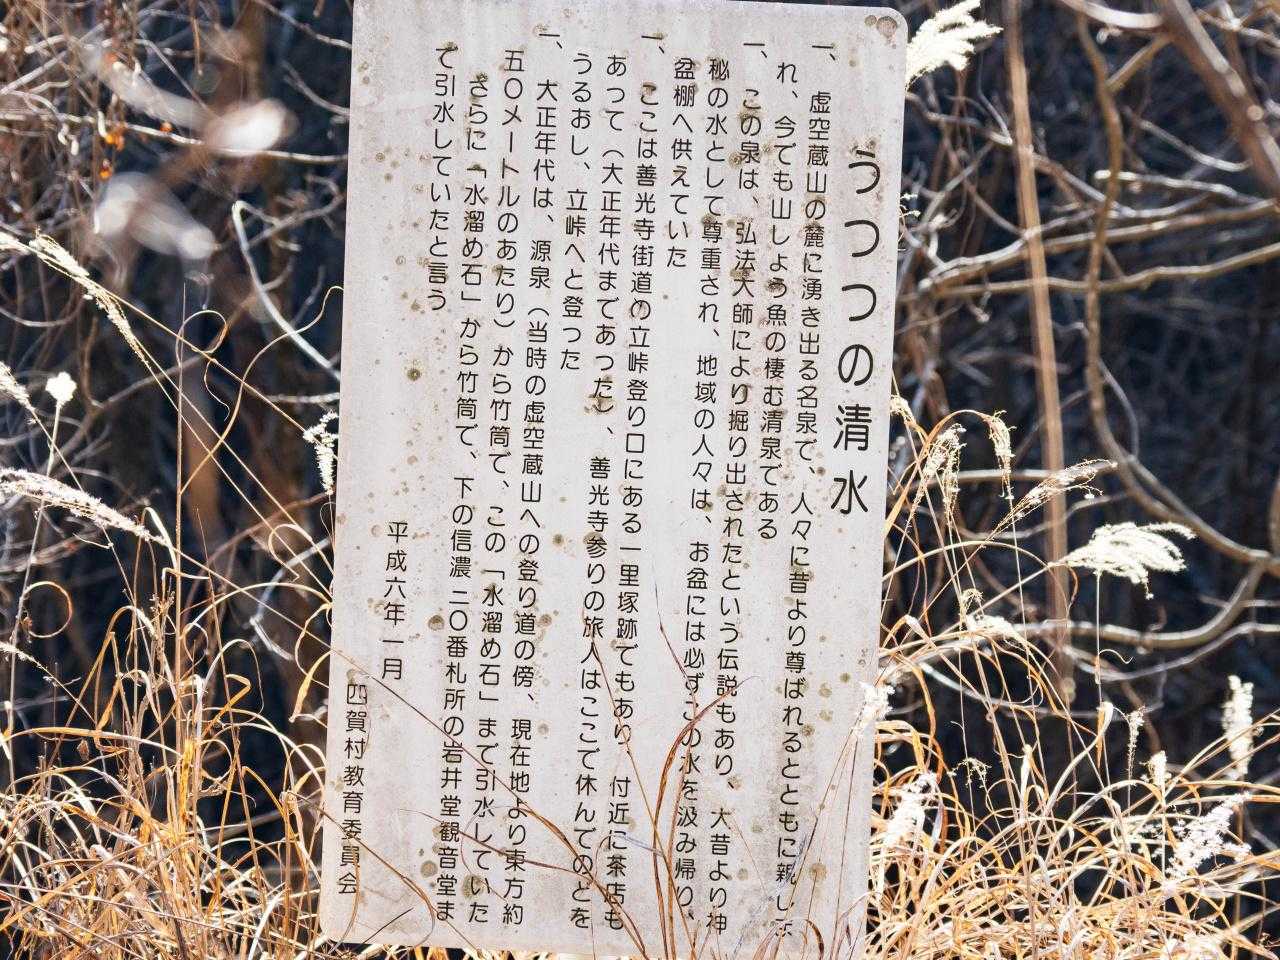 うつつの清水
一、虚空蔵山の麓に湧き出る名泉で、人々に昔より尊ばれるとともに親しま
れ、今でも山しよう魚の棲む清泉である
一、この泉は、弘法大師により掘り出されたという伝説もあり、大昔より神
秘の水として尊重され、地域の人々は、お盆には必ずこの水を汲み帰り、
盆棚へ供えていた
一、ここは善光寺街道の立峠登り口にある一里塚跡でもあり 付近に茶店も
あって(大正年代まであつた)、善光寺参りの旅人はここで休んでのどを
うるおし、立峠へと登った
一、大正年代は、源泉(当時の虚空蔵山への登り道の傍、現在地より東方約
五〇メートルのあたり)から竹筒で、この「水溜め石」まで引水していた
さらに「水溜め石」から竹筒で、下の信濃二〇番札所の岩井堂観音堂ま
で引水していたと言う
平成六年一月
四賀村教育委員会